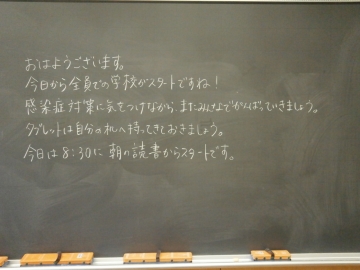 おはようございます。
今日から全員での学校がスタートですね！
感染症対策に気をつけながら、またみんなでがんばっていきましょう。
タブレットは自分の机へ持ってきておきましょう。
今日は8:30に朝の読書からスタートです。